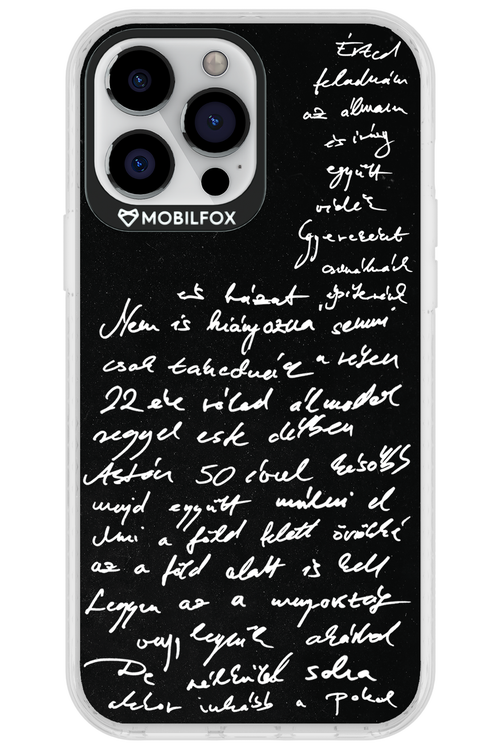 MOBILFOX
Érted
feladnám
az álmaim
és így
együtt
Gyerekeket
csinálnánk
és házat építenénk
Nem is hiányozna semmi
csak
22 éve rólad álmodok
reggel este délben
Aztán 50 évvel később
majd együtt múlni el
Ami a föld felett örökké
az a föld alatt is kell
Legyen az a mennyország
vagy legyünk akárhol
De nélküled soha
akkor inkább a Pokol